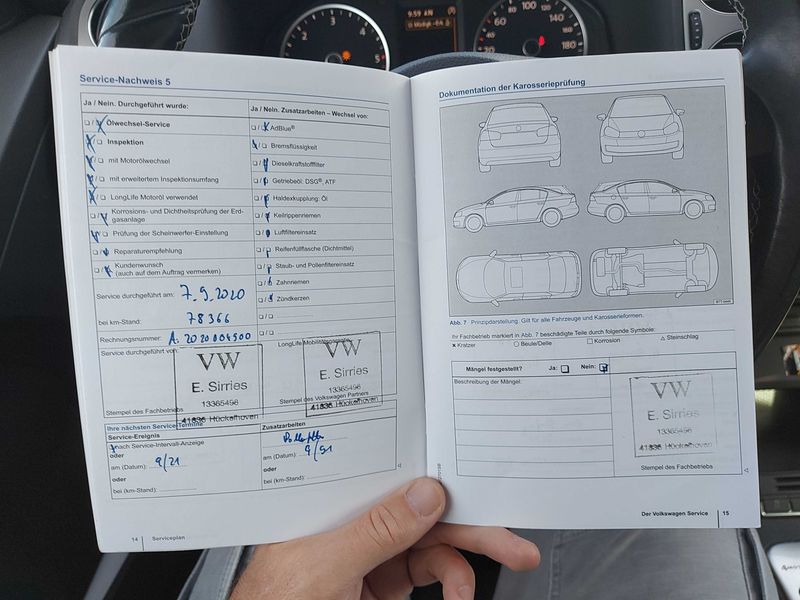 9:59 AM
1 2 3 4 5
60 80 100 120 140 160 180
Service-Nachweis 5
Ja / Nein. Durchgeführt wurde:
Ölwechsel-Service
Inspektion
mit Motorölwechsel
mit erweitertem Inspektionsumfang
LongLife Motoröl verwendet
Korrosions- und Dichtheitsprüfung der Erd-
gasanlage
Prüfung der Scheinwerfer-Einstellung
Reparaturempfehlung
Kundenwunsch
(auch auf dem Auftrag vermerken)
Service durchgeführt am: 7.9.2020
bei km-Stand: 78366
Rechnungsnummer: A. 2020004500
Service durchgeführt von:
VW
E. Sirries
13365496
41836 Hückelhoven
Stempel des Fachbetriebs
Ja / Nein. Zusatzarbeiten – Wechsel von:
AdBlue®
Bremsflüssigkeit
Dieselkraftstofffilter
Getriebeöl: DSG®, ATF
Haldexkupplung: Öl
Keilrippenriemen
Luftfiltereinsatz
Reifenfüllflasche (Dichtmittel)
Staub- und Pollenfiltereinsatz
Zahnriemen
Zündkerzen
LongLife Mobilitätsgarantie
VW
E. Sirries
13365496
41836 Hückelhoven
Stempel des Volkswagen Partners
Ihre nächsten Service-Termine
Service-Ereignis
nach Service-Intervall-Anzeige
oder
am (Datum): 9/21
oder
bei (km-Stand):
Zusatzarbeiten
am (Datum): 9/21
oder
bei (km-Stand):
14 Serviceplan
Dokumentation der Karosserieprüfung
Abb. 7 Prinzipdarstellung: Gilt für alle Fahrzeuge und Karosserieformen.
Ihr Fachbetrieb markiert in Abb. 7 beschädigte Teile durch folgende Symbole:
× Kratzer ○ Beule/Delle □ Korrosion △ Steinschlag
Mängel festgestellt? Ja: Nein:
Beschreibung der Mängel:
VW
E. Sirries
13365496
41836 Hückelhoven
Stempel des Fachbetriebs
Der Volkswagen Service 15